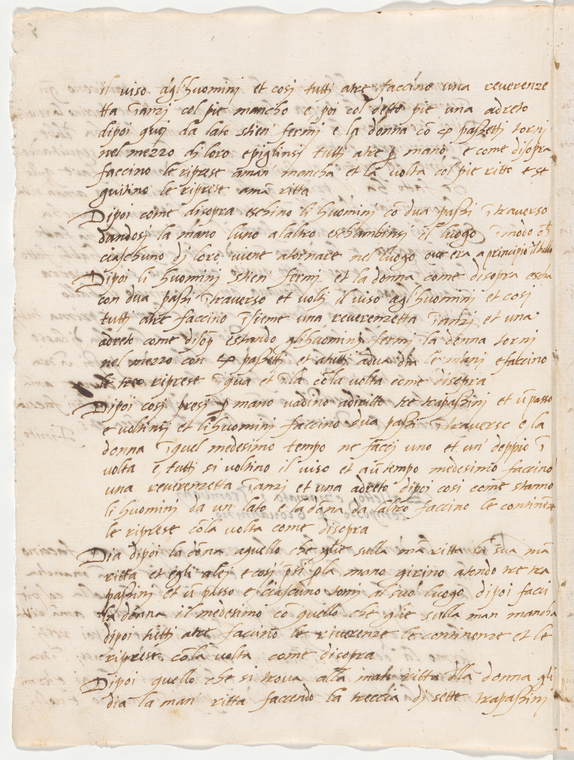 il viso agl'huominj et cosi tutti atre faccino una reverenze
tta inanzj col pie mancho e poi col detto pie una adreto
dipoi quej da lato stien fermi e la donna co passetti torni
nel mezzo di loro e piglinsi tutti atre p mano, e come disopra
faccino le riprese aman mancha et la volta col pie ritto e se
guitino le riprese ama ritta
Dipoi come disopra eschino li huominj co dua passi itraverso
dandosj la mano luno alaltro e schambinsi il luogo imodo che
ciaschuno dj loro viene atornare nel luogo ove era a principio il ballo
Dipoi li huominj stien fermi et la donna come disopra escha
con dua passi itraverso et volti il viso agl'huominj et cosi
tutti atre faccino isieme una reverenzetta ianzj et una
adreto come disopra estando gl'huominj fermi la donna torni
nel mezzo con passetti et atutti adua dia le manj e faccino
le tre riprese et la cola volta come disopra
Dipoi cosi presi p mano vadino adiritto tre trapassinj et u passo
e voltinsj et li huominj faccino dua passi itraverso e la
donna iquel medesimo tempo ne faccj uno et un deppio i
volta e tutti si voltino il viso et a u tempo medesimo faccino
una reverenzetta ianzj et una adreto dipoi cosi come stanno
li huominj da un lato e la dona da laltro faccino le continenze
le riprese cola volta come disopra
Dia dipoi la dona aquello che glie sulla ma ritta la sua ma
ritta et egli alej e cosi psi pla mano girino atondo tre tra
passinj et u passo e ciaschuno torni al suo luogo dipoi facci
la donna il medesimo co quello che glie sulla man mancha
dipoi tutti atre faccino le riverenze le continenze et le
riprese cola volta come disopra
Dipoi quello che si trova alla mano ritta dlla donna gli
dia la man ritta facendo la treccia dj sette trapassinj